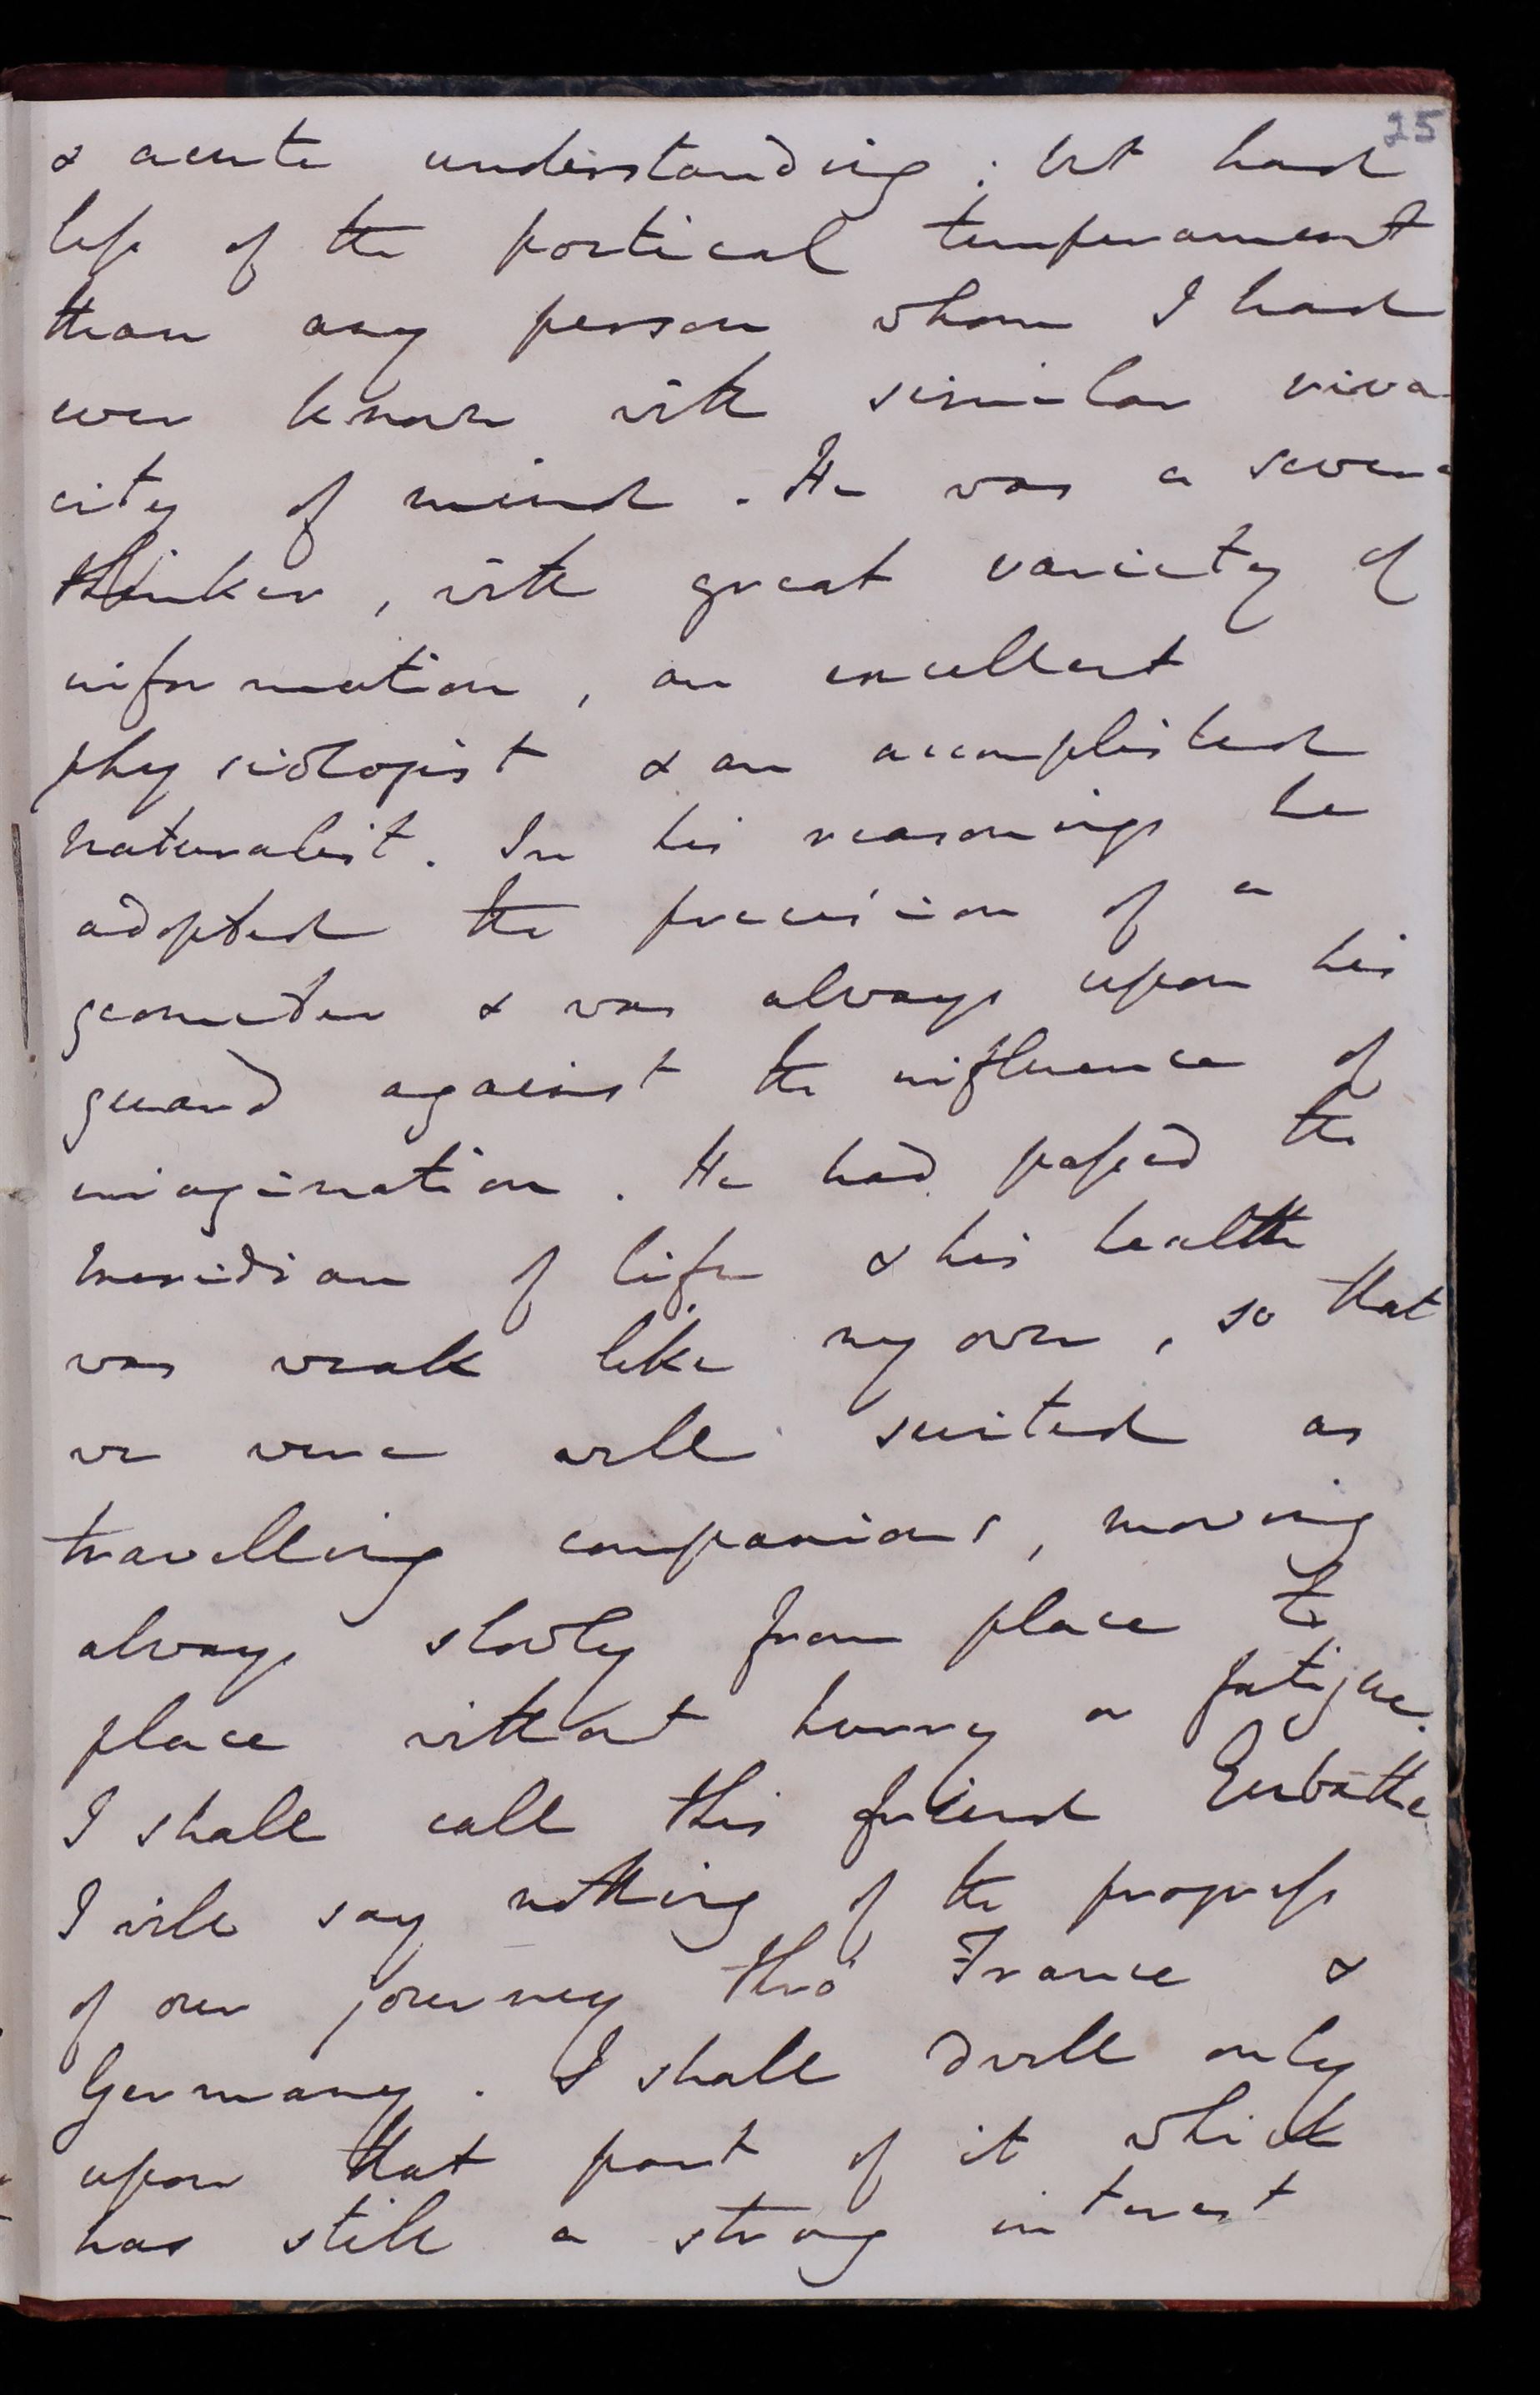 25
& acute understanding; but had
less of the poetical temperament
than any person whom I had
ever known with similar viva
city of mind. He was a severe
thinker, with great variety of
information, an excellent
physiologist & an accomplished
naturalist. In his reasonings he
adopted the precision of a
geometer & was always upon his
guard against the influence of
imagination. He had passed the
meridian of life & his health
was weak like my own, so that
we were well suited as
travelling companions, moving
always slowly from place to
place without hurry or fatigue.
I shall call this friend Eubathes
I will say nothing of the progress
of our journey thro' France &
Germany. I shall dwell only
upon that part of it which
has still a strong interest